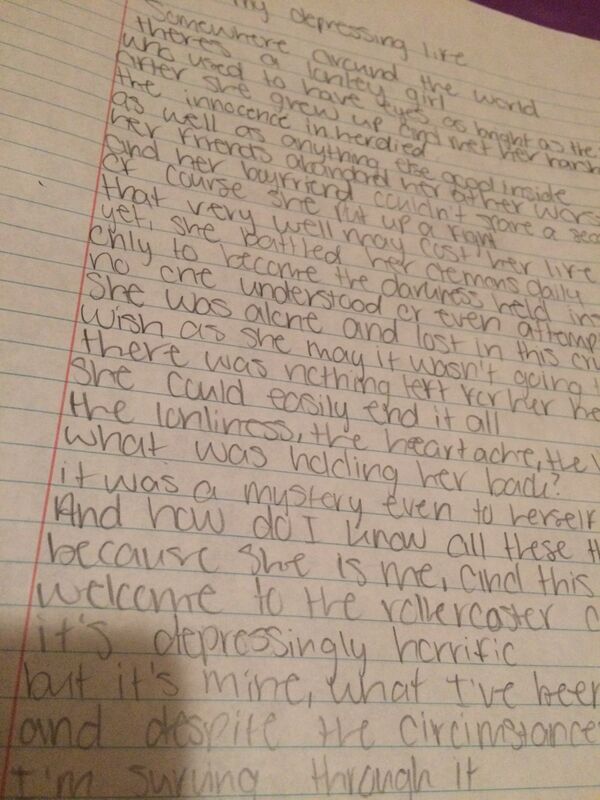 my depressing life
Somewhere around the world
there's a lonley girl
who used to have eyes as bright as the
After she grew up and met her harsh
the innocence in her died
as well as anything else good inside
her friends abandond her at her wors
and her boyfriend couldn't spare a seco
of course she put up a fight
that very well may cost her life
yet, she battled her demons daily
only to become the darkness held ins
no one understood or even attemp
She was alone and lost in this cru
wish as she may it wasn't going t
there was nothing left for her he
She could easily end it all
the lonliness, the heartache, the
what was holding her back?
it was a mystery even to herself
And how do I know all these th
because she is me, and this
welcome to the rollercoster o
it's depressingly horrific
but it's mine, what I've been
and despite the circumstance
I'm surving through it